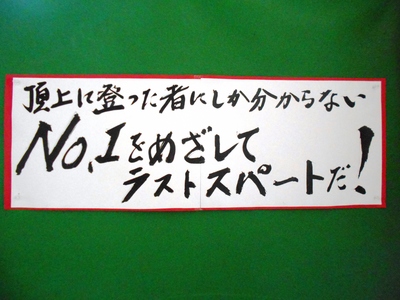 頂上に登った者にしか分からない
No.1をめざして
ラストスパートだ!